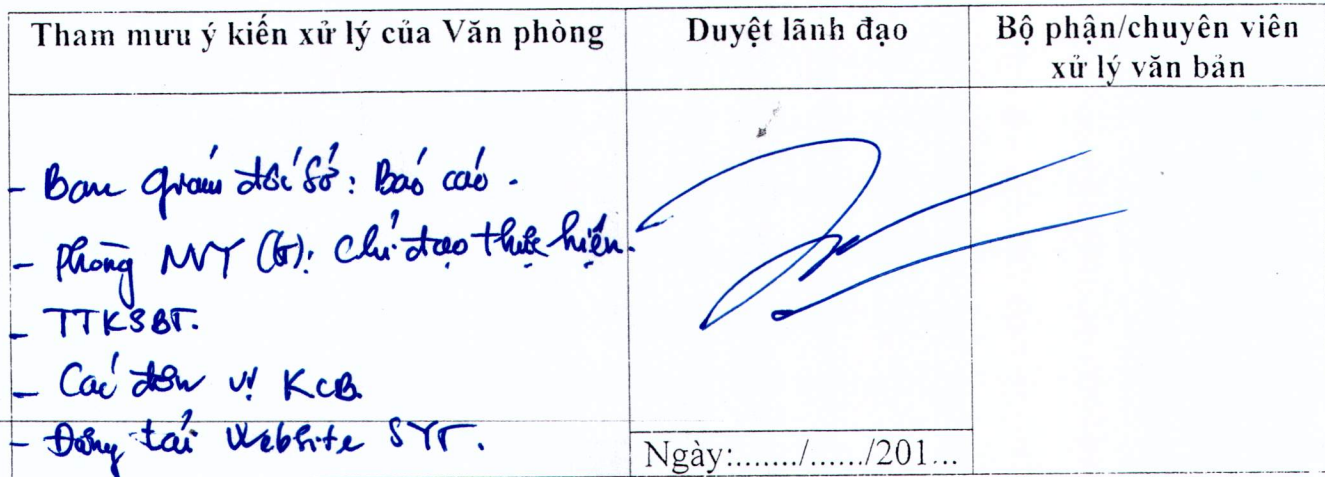 Tham mưu ý kiến xử lý của Văn phòng
Duyệt lãnh đạo
Bộ phận/chuyên viên
xử lý văn bản
- Ban giám đốc Sở: Báo cáo.
- Phòng NVY: Chỉ đạo thực hiện.
- TTKSBT.
- Các đơn vị KCB.
- Đăng tải Website SYT.
Ngày:......./....../201...